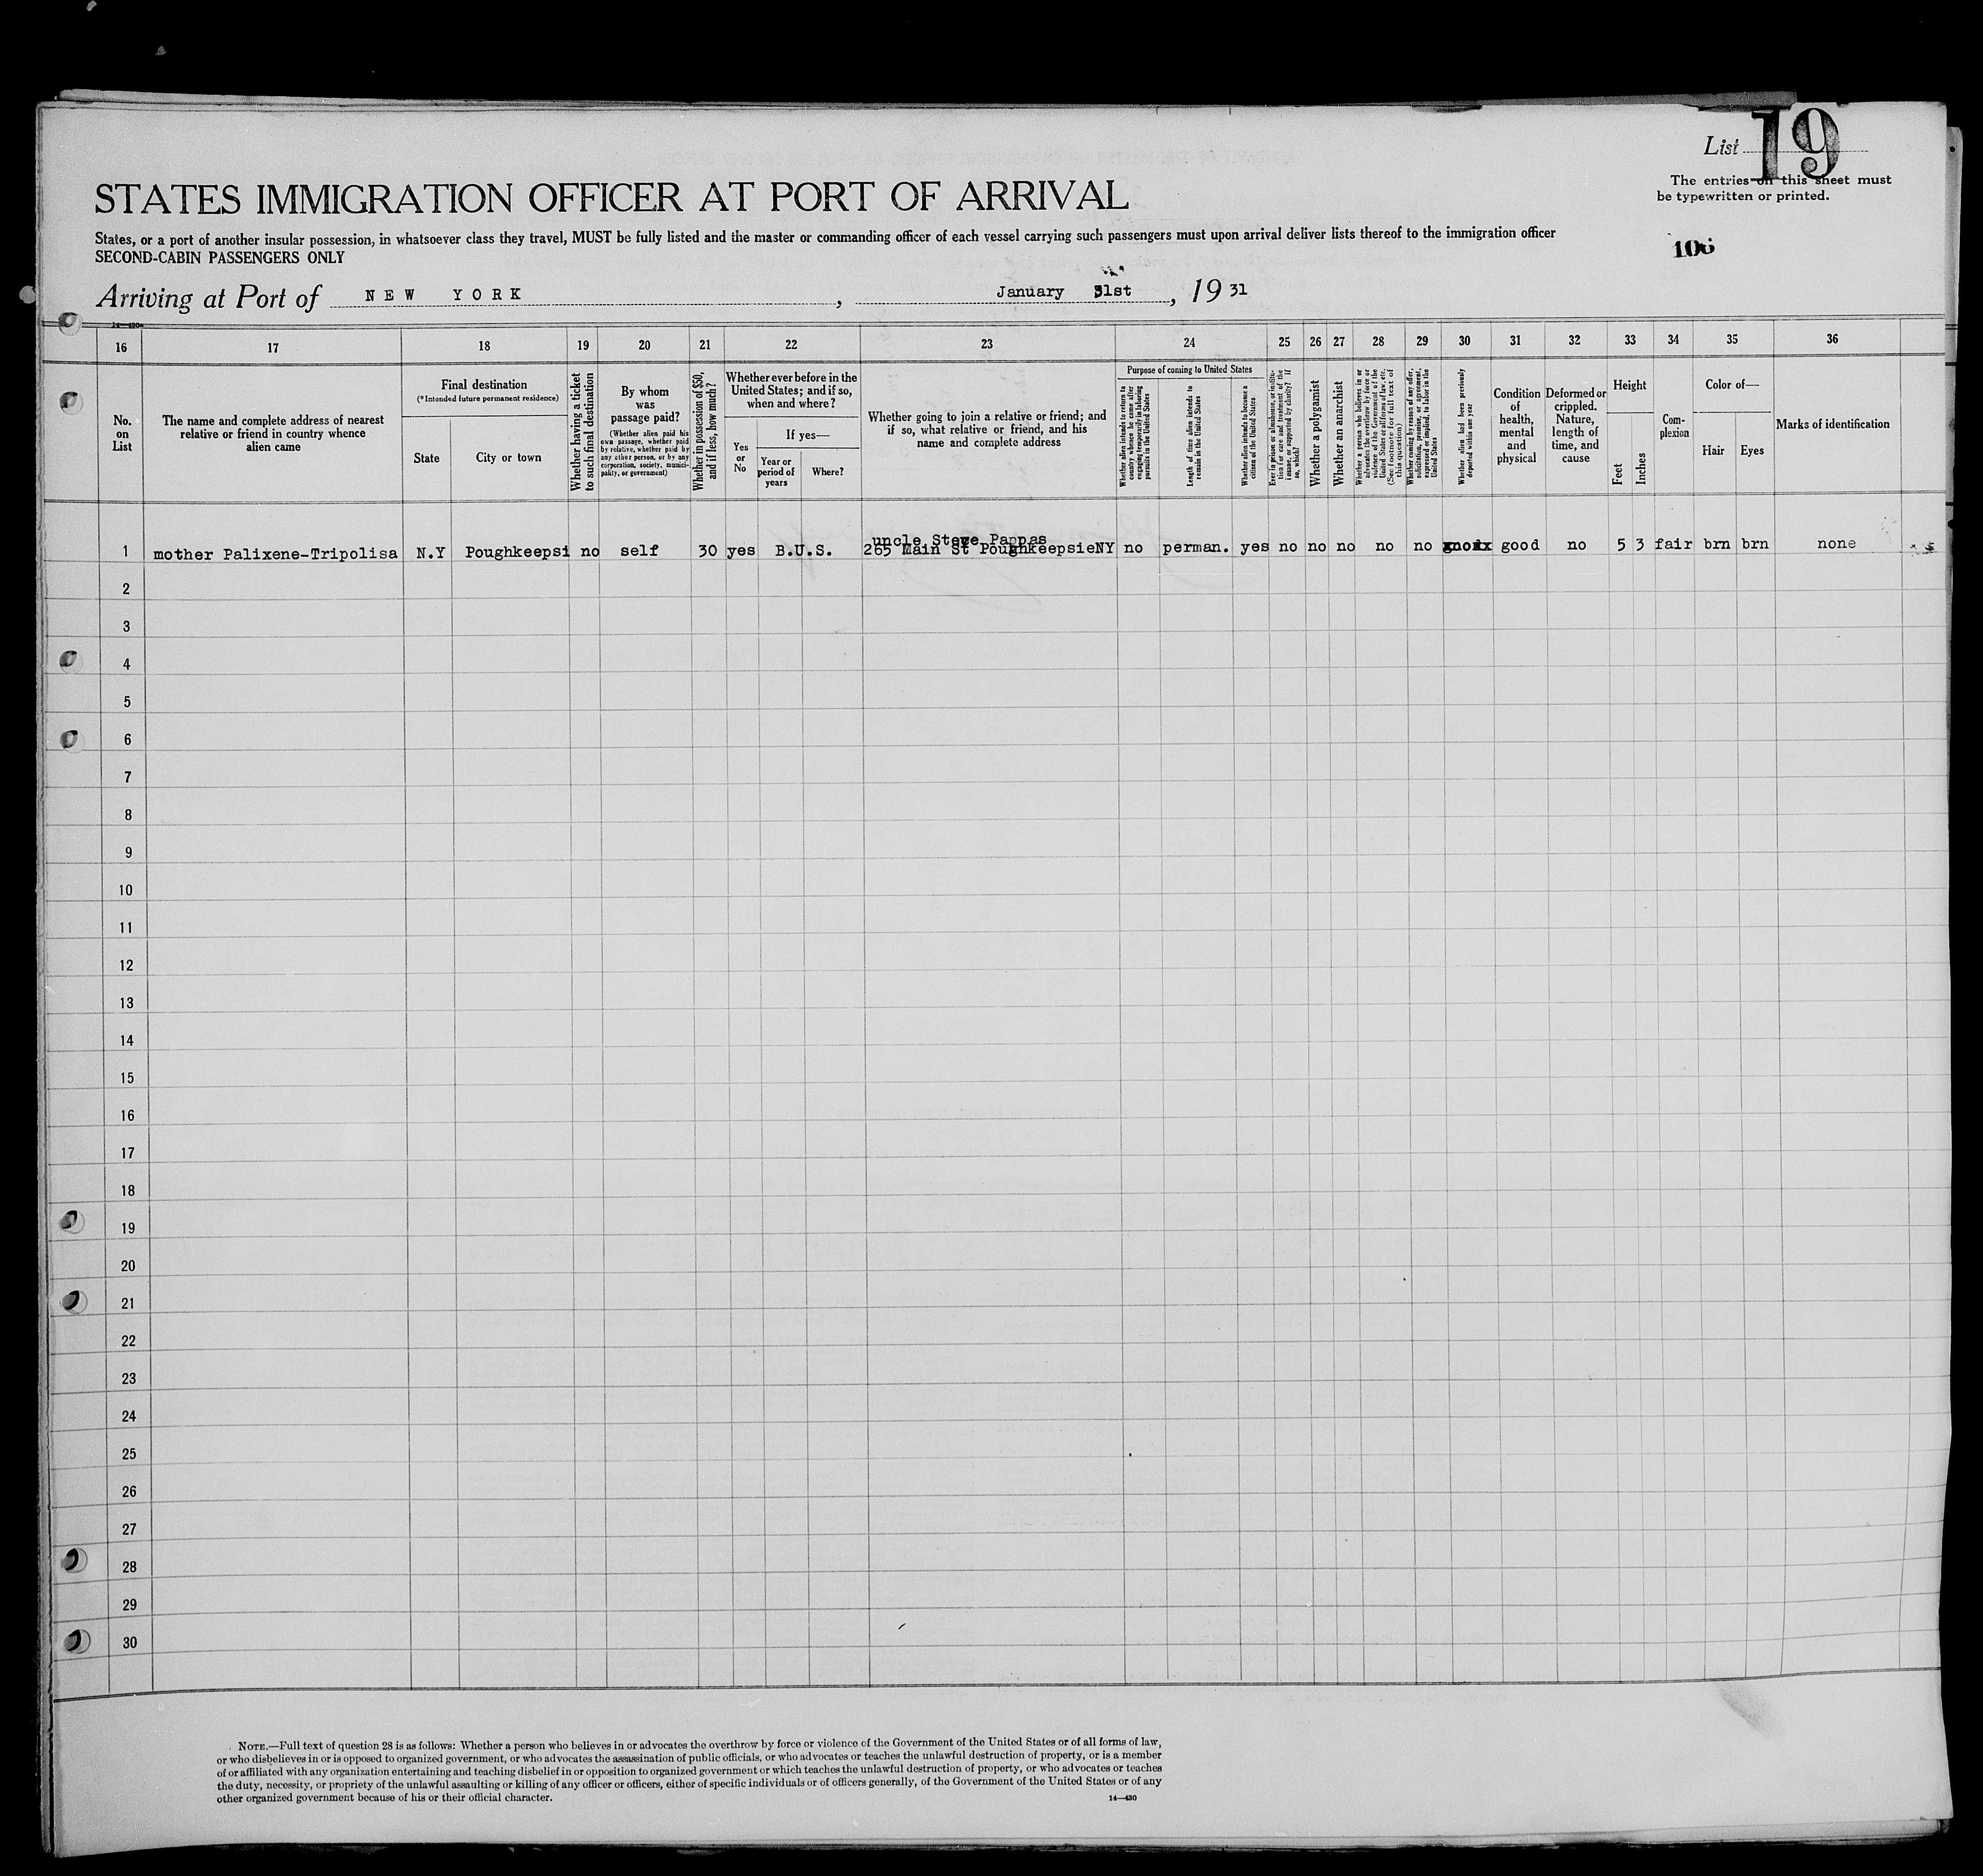 List 19
The entries on this sheet must
be typewritten or printed.
STATES IMMIGRATION OFFICER AT PORT OF ARRIVAL
States, or a port of another insular possession, in whatsoever class they travel, MUST be fully listed and the master or commanding officer of each vessel carrying such passengers must upon arrival deliver lists thereof to the immigration officer
SECOND-CABIN PASSENGERS ONLY
106
Arriving at Port of NEW YORK, January 31st, 1931
14—430
16 17 18 19 20 21 22 23 24 25 26 27 28 29 30 31 32 33 34 35 36
No.
on
List
The name and complete address of nearest
relative or friend in country whence
alien came
Final destination
(*Intended future permanent residence)
State
City or town
Whether having a ticket
to such final destination
By whom
was
passage paid?
(Whether alien paid his
own passage, whether paid
by relative, whether paid by
any other person, or by any
corporation, society, munici-
pality, or government)
Whether in possession of $50,
and if less, how much?
Whether ever before in the
United States; and if so,
when and where?
Yes
or
No
If yes—
Year or
period of
years
Where?
Whether going to join a relative or friend; and
if so, what relative or friend, and his
name and complete address
Purpose of coming to United States
Whether alien intends to return to
country whence he came after
engaging temporarily in laboring
pursuits in the United States
Length of time alien intends to
remain in the United States
Whether alien intends to become a
citizen of the United States
Ever in prison or almshouse, or institu-
tion for care and treatment of the
insane, or supported by charity? If
so, which?
Whether a polygamist
Whether an anarchist
Whether a person who believes in or
advocates the overthrow by force or
violence of the Government of the
United States or all forms of law, etc.
(See footnote for full text of
this question)
Whether coming by reason of any offer,
solicitation, promise, or agreement,
expressed or implied, to labor in the
United States
Whether alien had been previously
deported within one year
Condition
of
health,
mental
and
physical
Deformed or
crippled.
Nature,
length of
time, and
cause
Height
Feet
Inches
Com-
plexion
Color of—
Hair
Eyes
Marks of identification
uncle Steve Pappas
1 mother Palixene-Tripolisa N.Y Poughkeepsi no self 30 yes B.U.S. 265 Main St PoughkeepsieNY no perman. yes no no no no no good no 5 3 fair brn brn none
2
3
4
5
6
7
8
9
10
11
12
13
14
15
16
17
18
19
20
21
22
23
24
25
26
27
28
29
30
NOTE.—Full text of question 28 is as follows: Whether a person who believes in or advocates the overthrow by force or violence of the Government of the United States or of all forms of law,
or who disbelieves in or is opposed to organized government, or who advocates the assassination of public officials, or who advocates or teaches the unlawful destruction of property, or is a member
of or affiliated with any organization entertaining and teaching disbelief in or opposition to organized government or which teaches the unlawful destruction of property, or who advocates or teaches
the duty, necessity, or propriety of the unlawful assaulting or killing of any officer or officers, either of specific individuals or of officers generally, of the Government of the United States or of any
other organized government because of his or their official character.
14—430